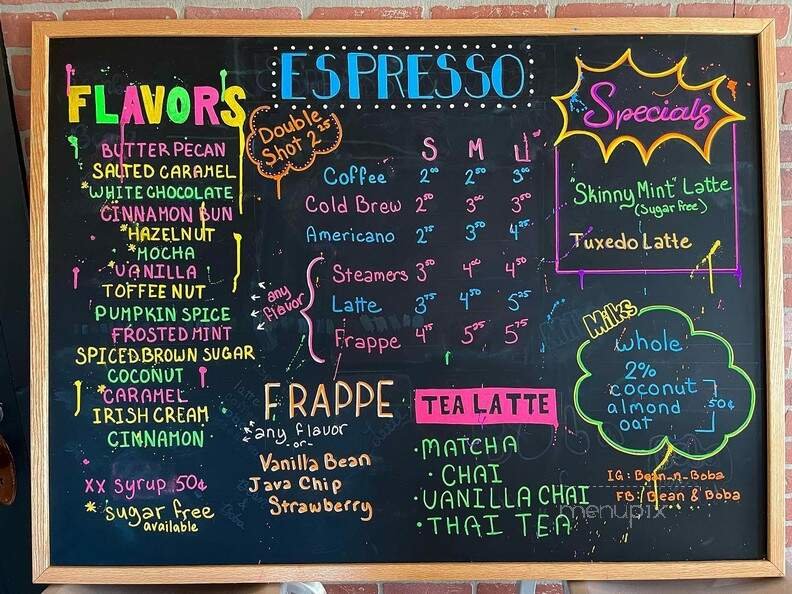 FLAVORS
BUTTER PECAN
SALTED CARAMEL
*WHITE CHOCOLATE
CINNAMON BUN
*HAZELNUT
*MOCHA
*VANILLA
TOFFEE NUT
PUMPKIN SPICE
FROSTED MINT
SPICED BROWN SUGAR
COCONUT
*CARAMEL
IRISH CREAM
CINNAMON
xx syrup 50¢
* sugar free
available
ESPRESSO
Double
Shot 2.25
S M L
Coffee 2.00 2.50 3.00
Cold Brew 2.50 3.00 3.50
Americano 2.75 3.50 4.25
Steamers 3.50 4.00 4.50
Latte 3.75 4.50 5.25
Frappe 4.75 5.25 5.75
any
flavor
FRAPPE
*any flavor
-or-
Vanilla Bean
Java Chip
Strawberry
TEA LATTE
·MATCHA
·CHAI
·VANILLA CHAI
·THAI TEA
Specials
"Skinny Mint" Latte
(Sugar free)
Tuxedo Latte
Milks
whole
2%
coconut
almond 50¢
oat
IG: Bean_n_Boba
FB: Bean & Boba
menupix